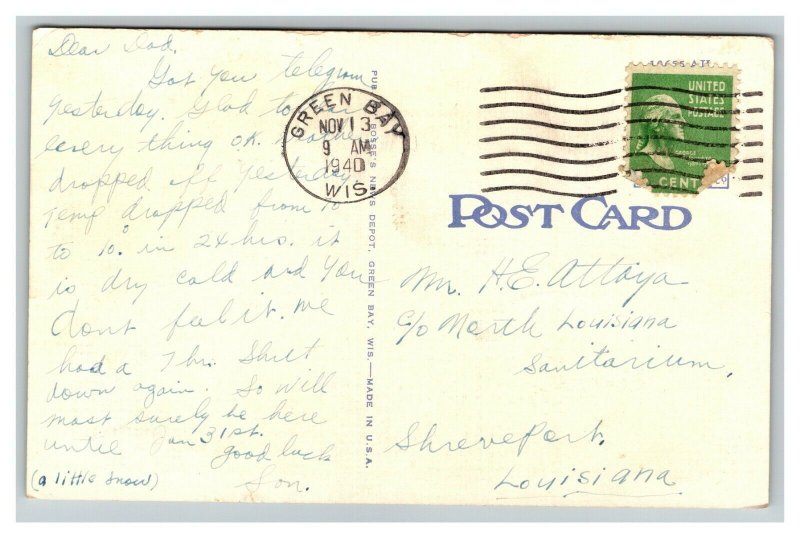 Dear Dad.
Got you telegram
yesterday. Glad to hear
every thing ok. weather
dropped off yesterday.
Temp dropped from
to 10° in 24 hrs. it
is dry cold and you
dont feel it. We
had a 7 hr. Shut
down again. So will
most surely be here
until Jan 31st.
good luck
Son.
(a little snow)
PUB. BOSSE'S NEWS DEPOT, GREEN BAY, WIS.—MADE IN U.S.A.
GREEN BAY
NOV 13
9 AM
1940
WIS.
UNITED
STATES
POSTAGE
GEORGE
CENT
POST CARD
Mr. H.E. Attaya
c/o North Louisiana
Sanitarium,
Shreveport,
Louisiana